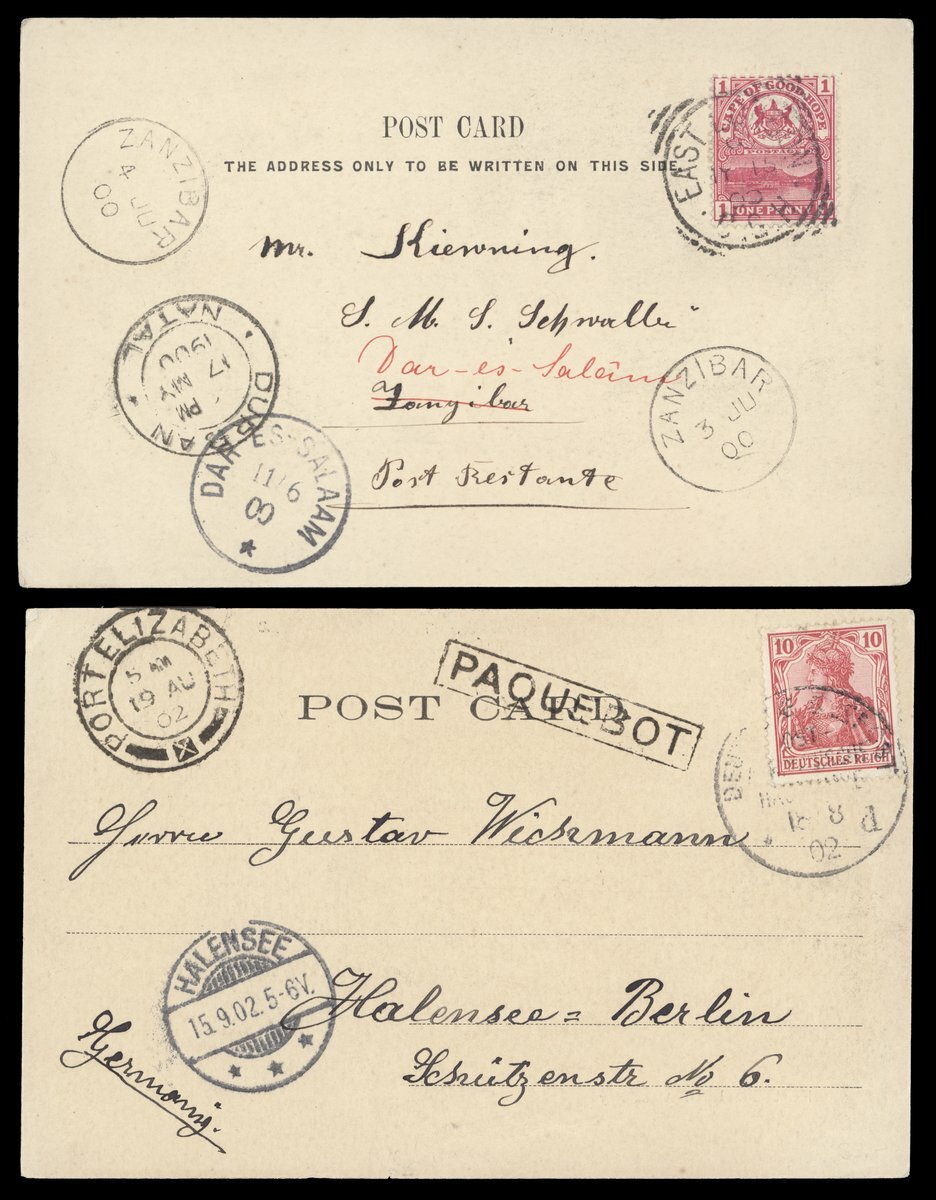 POST CARD
THE ADDRESS ONLY TO BE WRITTEN ON THIS SIDE
1 1
CAPE OF GOOD HOPE
POSTAGE
1 ONE PENNY
EAST
ZANZIBAR
4 JU
00
Mr. Kiewning.
S. M. S. "Schwalbe"
Dar-es-Salâm
Zanzibar
Post Restante
DURBAN
NATAL
PM
17 MY
1900
ZANZIBAR
3 JU
00
DAR-ES-SALAAM
11/6
00
PORT ELIZABETH
5 AM
19 AU
02
PAQUEBOT
POST CARD
10 10
DEUTSCHES REICH
18 8
02
Herrn Gustav Wickmann
HALENSEE
15.9.02.5-6V.
Halensee = Berlin
Schützenstr No 6.
Germany.